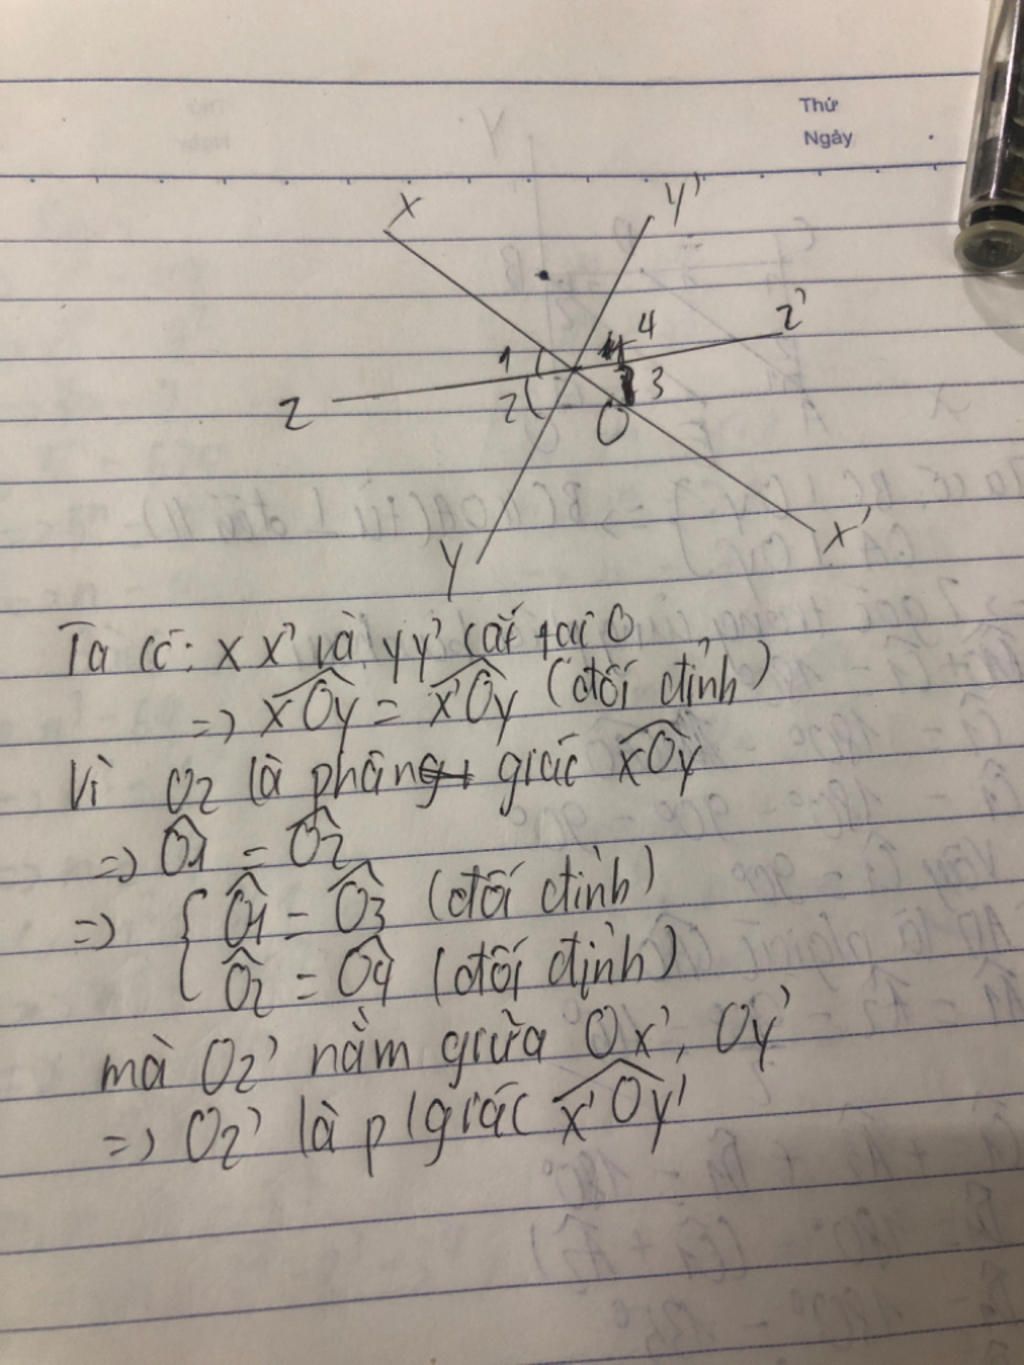 Thứ
Ngày
x
y'
z'
4
1
3
2
z
O
x'
y
Ta có: xx' và yy' cắt tại O
=> xÔy = x'Ôy (đối đỉnh)
Vì Oz là phân giác xÔy
=> Ô1 = Ô2
=> { Ô1 = Ô3 (đối đỉnh)
Ô2 = Ô4 (đối đỉnh)
mà Oz' nằm giữa Ox', Oy'
=> Oz' là p/giác x'Ôy'